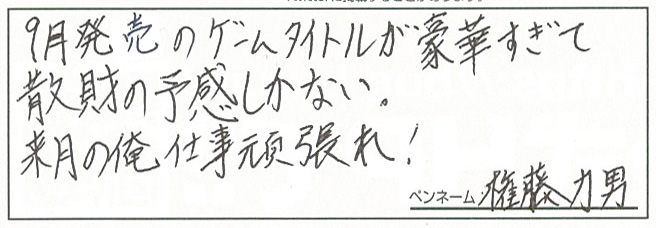 9月発売のゲームタイトルが豪華すぎて
散財の予感しかない。
来月の俺仕事頑張れ！
ペンネーム 権藤力男